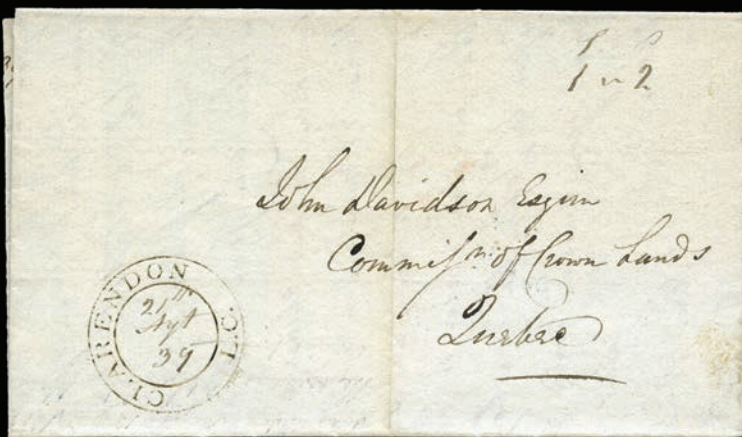 John Davidson Esqire
Commissr. of Crown Lands
Quebec
CLARENDON L.C.
Sept
39